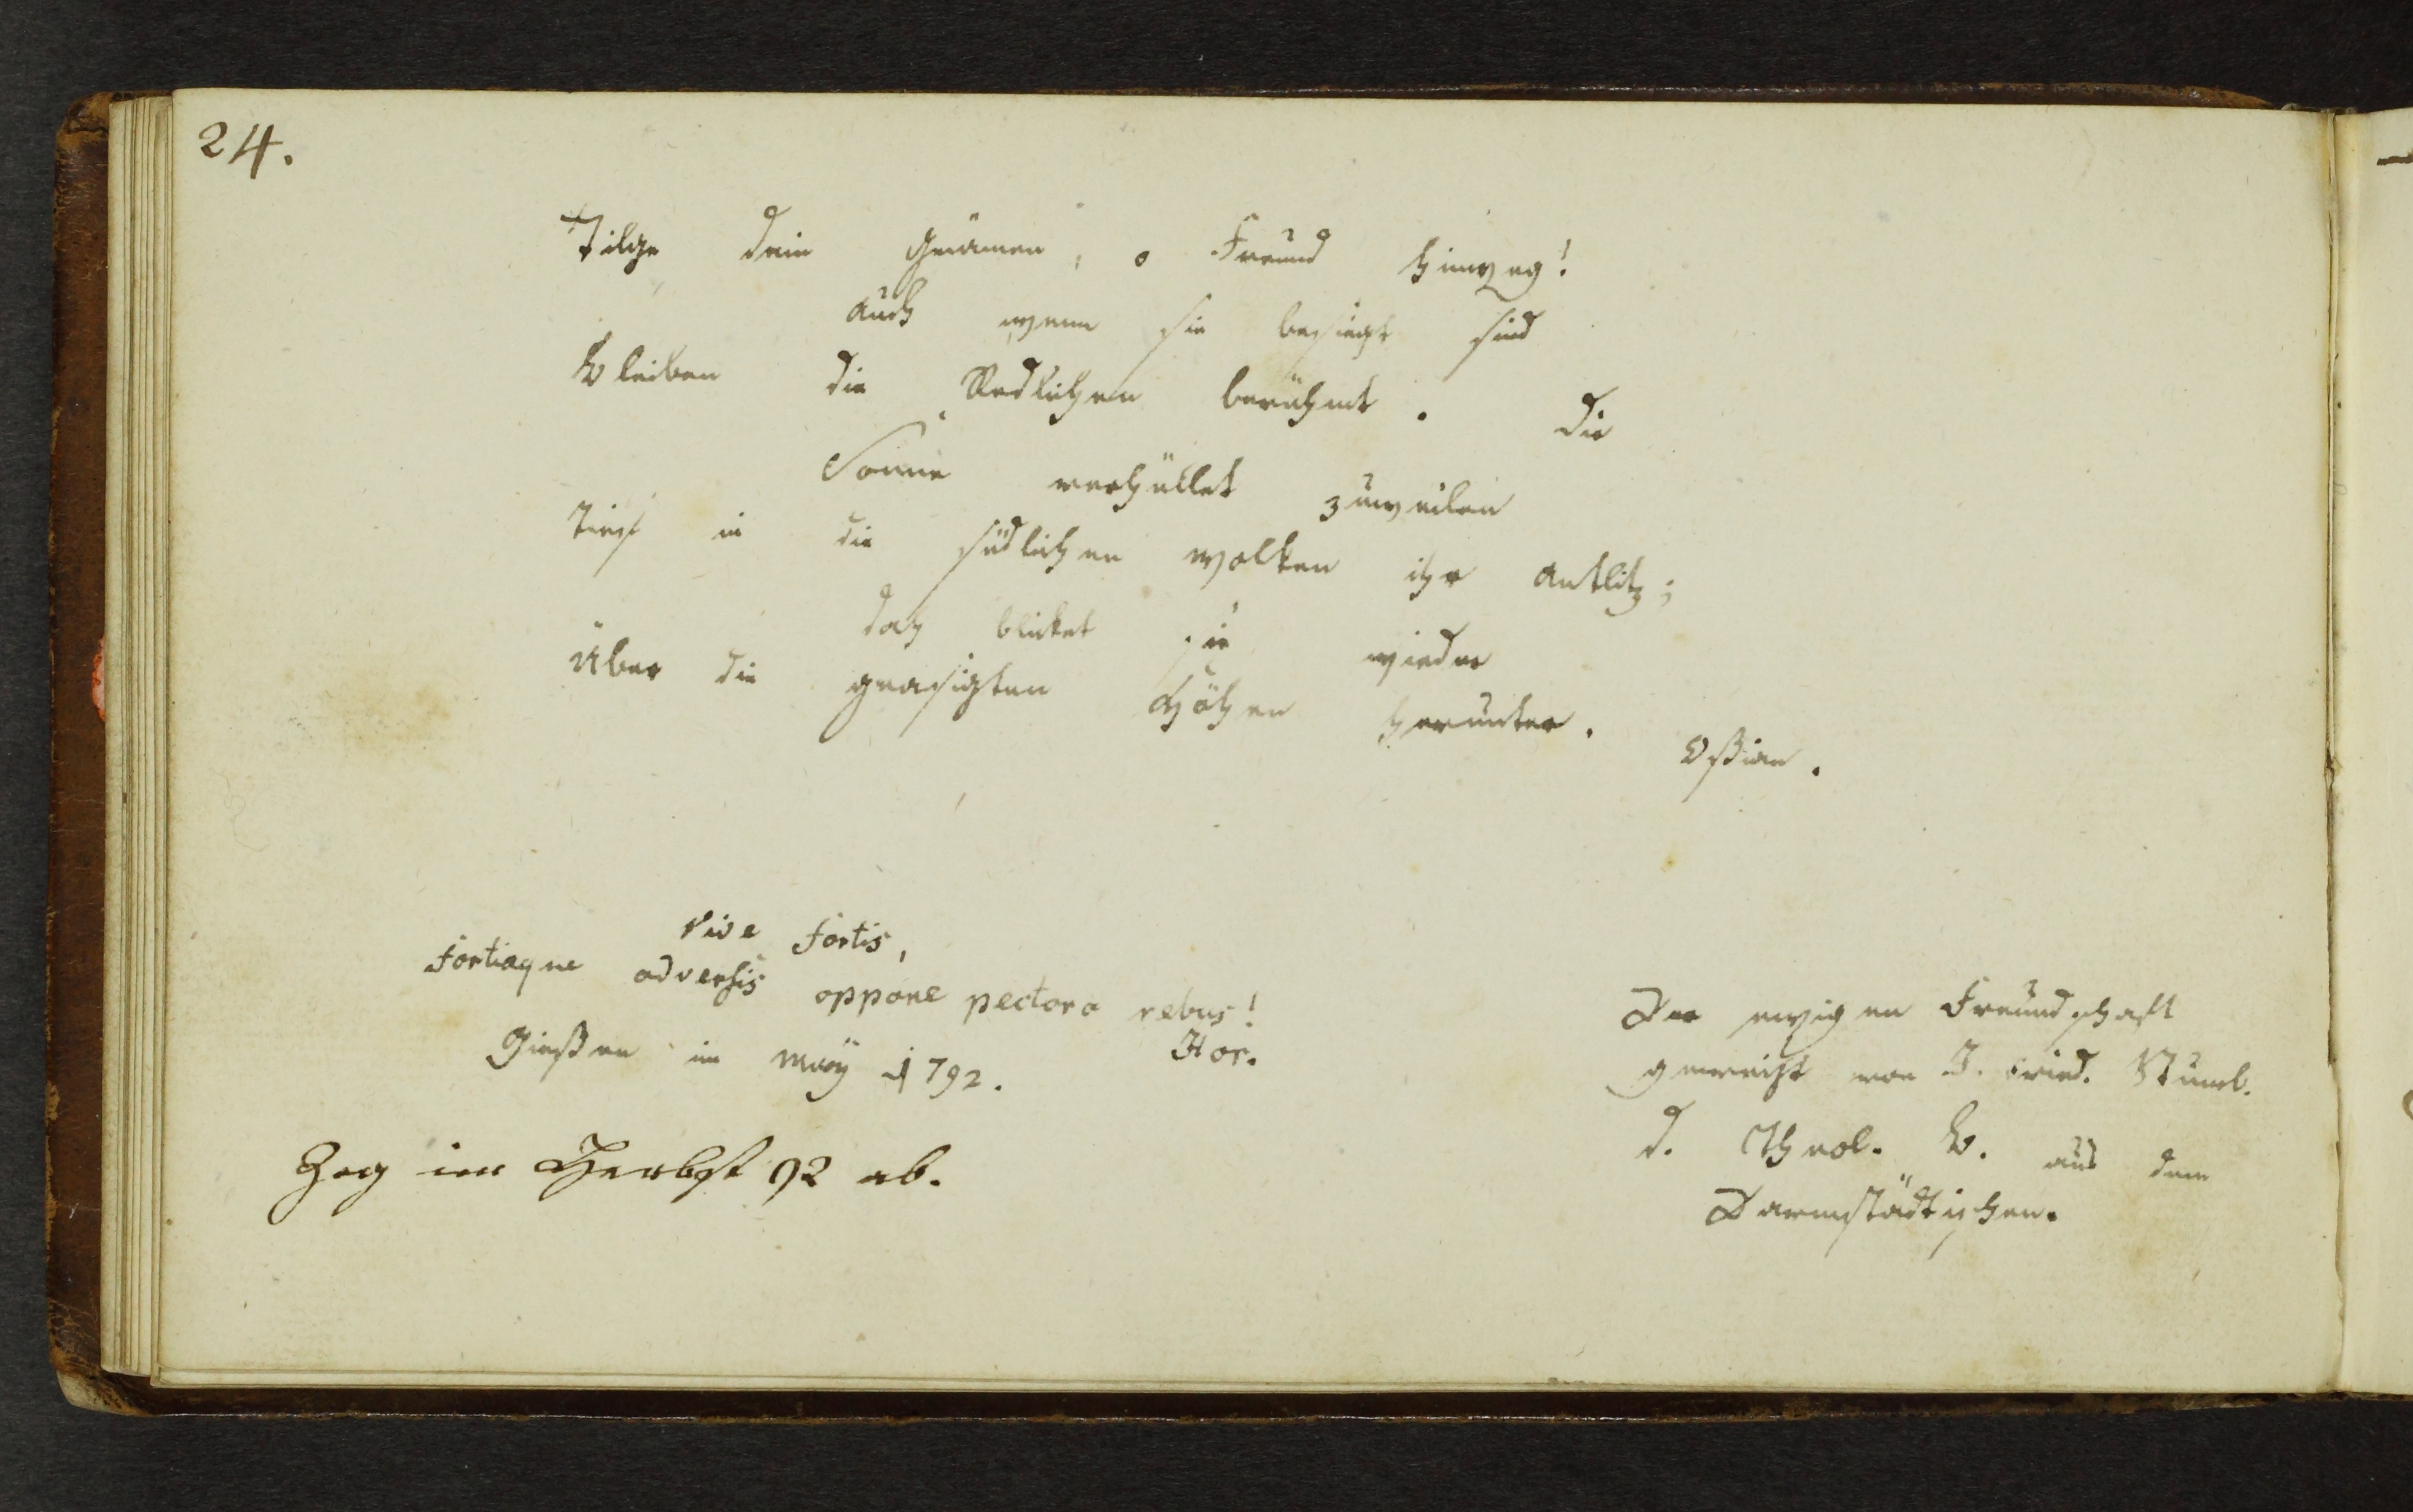 24.
Tilge dein Grämen, o Freund hinweg!
auch wenn sie besiegt sind
Bleiben die Redlichen berühmt. Die
Sonne verhüllet zuweilen
Tief in die südlichen Wolken ihr Antlitz;
doch blicket sie wieder
Über die grasigten Höhen herunter.
Oßian.
Vive fortis,
Fortiaque adversis oppone pectora rebus!
Hor.
Gießen im May 1792.
Der ewigen Freundschaft
geweiht von J. Fried.
d. Theol. B. aus dem
Darmstädtischen.
Zog im Herbst 92 ab.